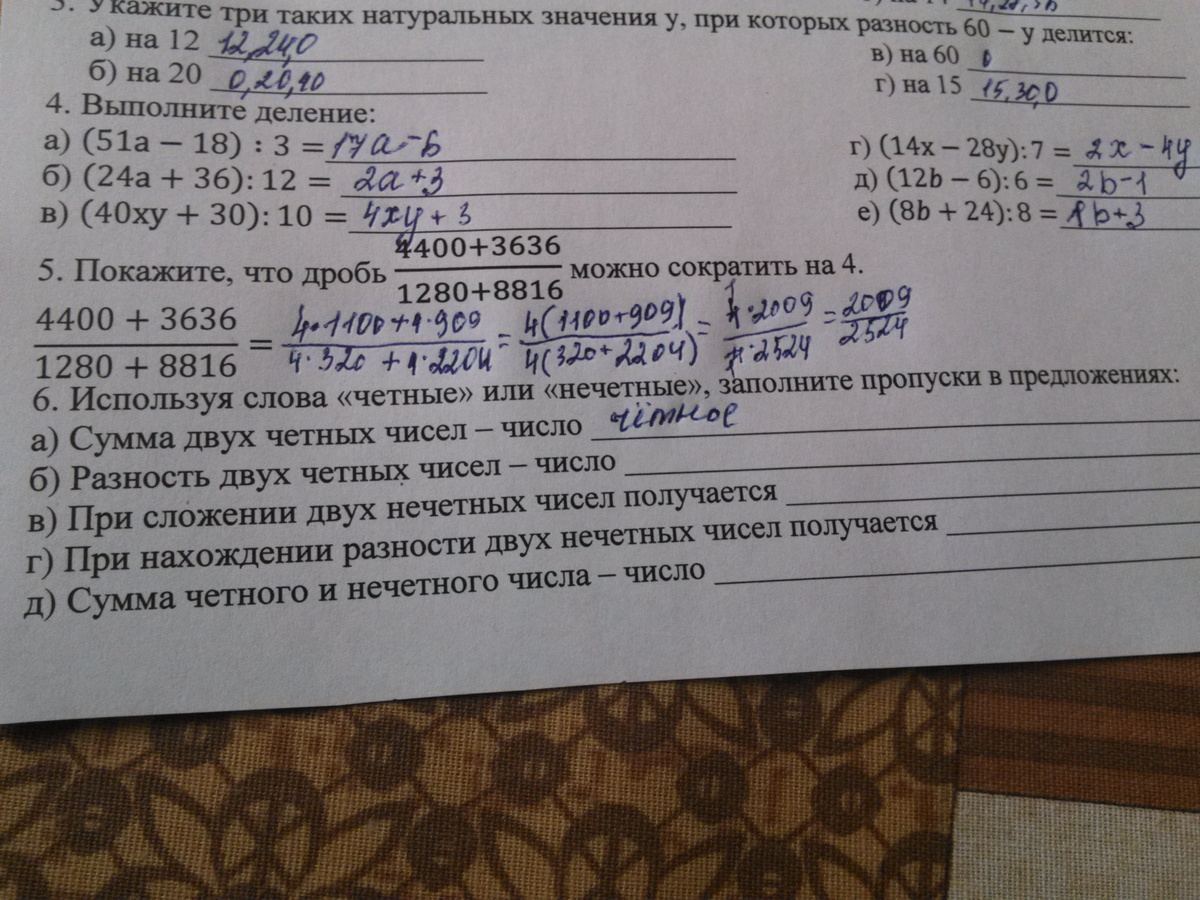 3. Укажите три таких натуральных значения y, при которых разность 60 – y делится:
а) на 12 12,24,0
в) на 60 0
б) на 20 0,20,40
г) на 15 15,30,0
4. Выполните деление:
а) (51a − 18) : 3 = 17a - 6
г) (14x − 28y): 7 = 2x - 4y
б) (24a + 36): 12 = 2a + 3
д) (12b − 6): 6 = 2b - 1
в) (40xy + 30): 10 = 4xy + 3
е) (8b + 24): 8 = 1b + 3
5. Покажите, что дробь (4400+3636)/(1280+8816) можно сократить на 4.
(4400 + 3636)/(1280 + 8816) = (4·1100+4·909)/(4·320+4·2204) = 4(1100+909)/4(320+2204) = 4·2009/4·2524 = 2009/2524
6. Используя слова «четные» или «нечетные», заполните пропуски в предложениях:
а) Сумма двух четных чисел – число чётное
б) Разность двух четных чисел – число
в) При сложении двух нечетных чисел получается
г) При нахождении разности двух нечетных чисел получается
д) Сумма четного и нечетного числа – число